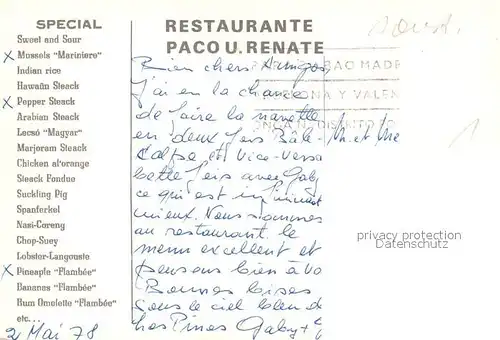 SPECIAL
Sweet and Sour
x Mussels "Mariniere"
Indian rice
Hawain Steack
x Pepper Steack
Arabian Steack
Lecsó "Magyar"
Marjoram Steack
Chicken al'orange
Steack Fondue
Suckling Pig
Spanferkel
Nasi-Goreng
Chop-Suey
Lobster-Langouste
x Pineaple "Flambée"
Bananas "Flambée"
Rum Omolette "Flambée"
etc...
2 Mai 78
RESTAURANTE
PACO U. RENATE
BAO MADR
ONA Y VALEN
Bien chers Amigos,
J'ai eu la chance
de faire la navette
en deux fois Bâle-
Calpe et vice-versa
cette fois avec Gaby
ce qui est infiniment
mieux. Nous sommes
au restaurant. le
menu excellent et
pensons bien à vo
Bonnes bises
sous le ciel bleu d
Los Pinos Gaby +
M. et Mme
privacy protection
Datenschutz